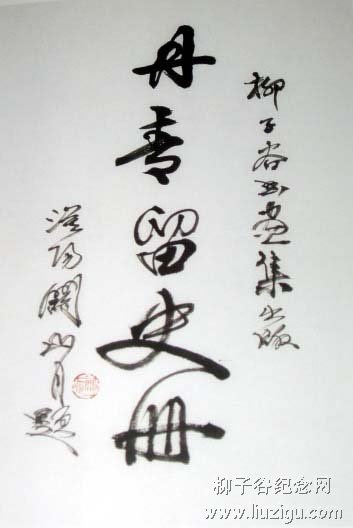 柳子谷书画集出版
丹青留史冊
漠陽關山月題
柳子谷纪念网
www.liuzigu.com